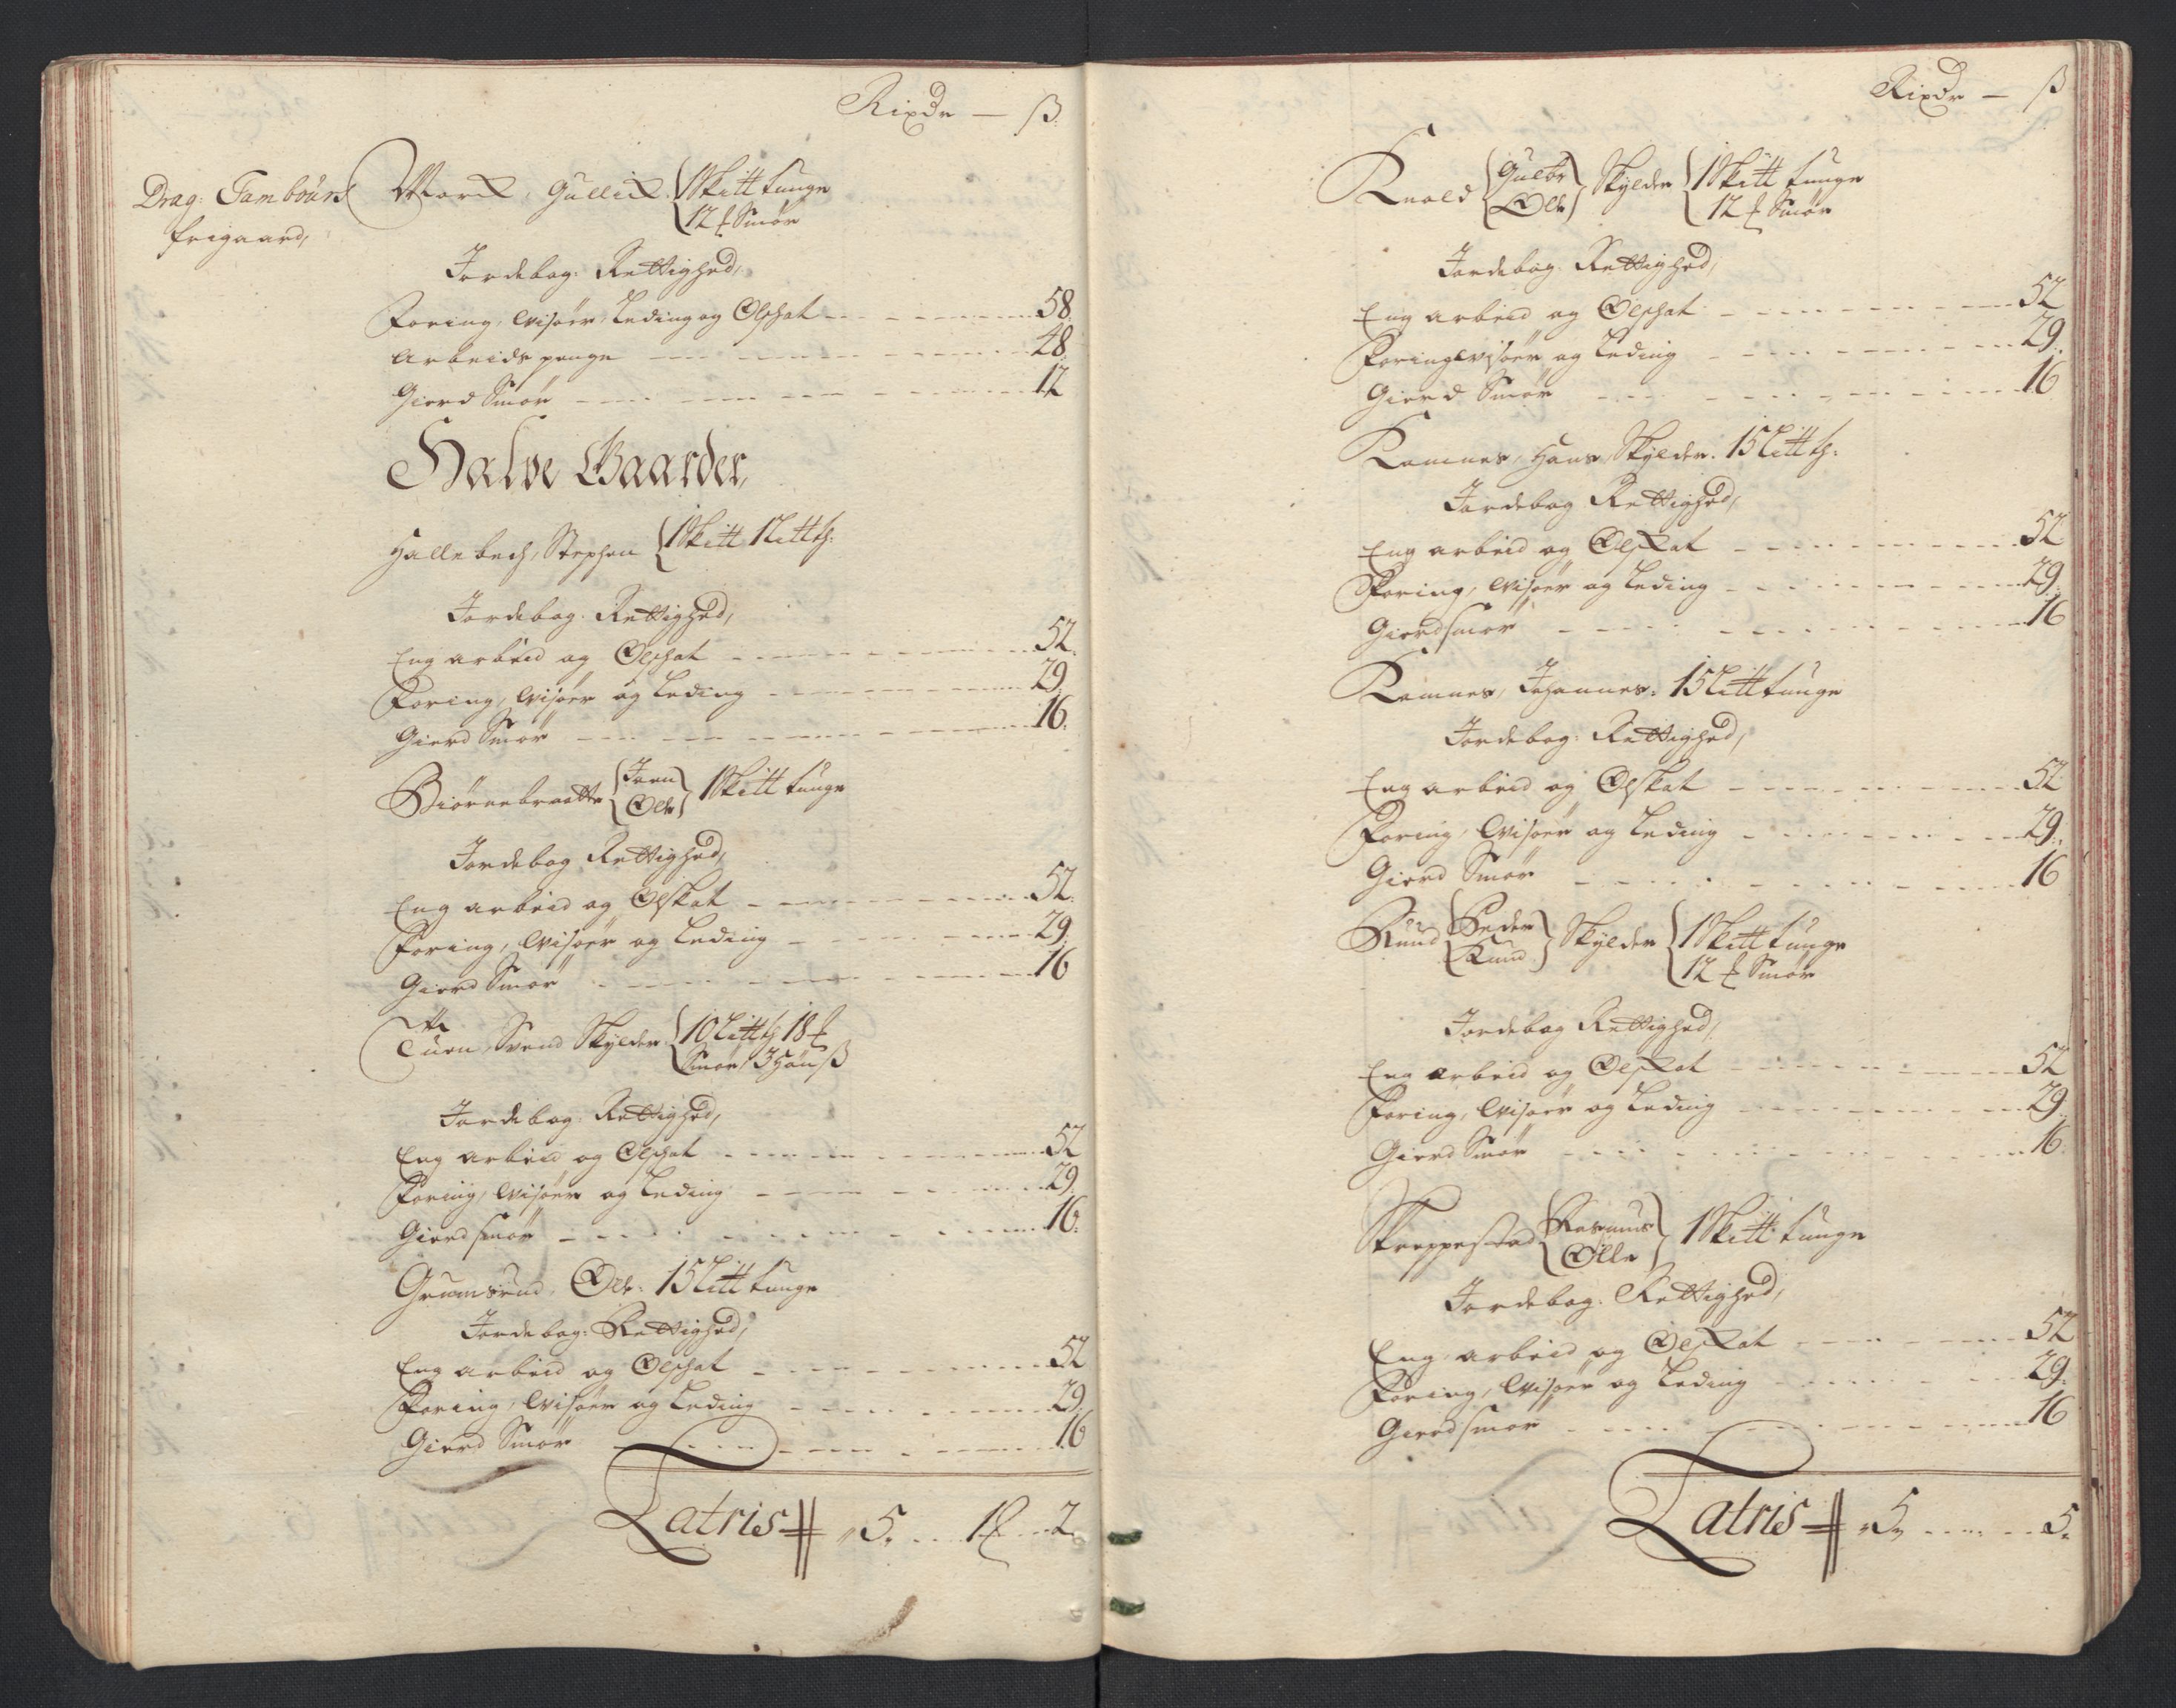 Rixdr — ß.
Drag: Tambours frigaard,
Morck, Gullick. 1 Skitt tunge
12 ℔ Smør
Jordebog: Rettighed,
Foring, Wisøer, Leding og Ølschat 58.
Arbeids penge 48.
Gierd Smør 12
Halve Gaarder,
Hallebech, Stephen 1 Skitt 1 Litt th:
Jordebog: Rettighed,
Eng arbeid og Ølschat 52.
Foring, Wisøer og Leding 29.
Gierd Smør 16.
Biørnebraatte Joen Ole 1 Skitt tunge
Jordebog Rettighed,
Eng arbeid og Ølskat 52.
Foring, Wisøer og Leding 29.
Gierd Smør 16
Tuen, Svend Skylder. 10 Litt th 18 ℔
Smør 3 Hanß
Jordebog: Rettighed,
Eng arbeid og Ølschat 52
Foring, Wisøer og Leding 29.
Gierdsmør 16.
Grumsrud, Ole: 15 Litt tunge
Jordebog: Rettighed,
Eng arbeid og Ølschat 52
Foring, Wisøer og Leding 29.
Gierd Smør 16
Latris 5. 1 ℔ 2.
Rixdr — ß
Knold Gulbr Ole Skylder 1 Skitt tunge
12 ℔ Smør
Jordebog: Rettighed,
Eng arbeid og Ølschat 52
Foring Wisøer og Leding 29.
Gierd Smør 16
Komnes, Hans Skylder: 15 Litt th:
Jordebog Rettighed,
Eng arbeid og Ølskat 52
Foring, Wisøer og Leding 29.
Gierdsmør 16
Komnes, Johannes: 15 Litt tunge
Jordebog: Rettighed,
Eng arbeid og Ølskat 52
Foring, Wisøer og Leding 29.
Gierd Smør 16
Ruud Peder Knud Skylder 1 Skitt tunge
12 ℔ Smør
Jordebog Rettighed,
Eng arbeid og Ølskat 52
Foring, Wisøer og Leding 29.
Gierd Smør 16.
Skreppestad Rasmus Olle 1 Skitt: tunge
Jordebog: Rettighed,
Eng arbeid og Ølskat 52
Foring, Wisøer og Leding 29.
Gierdsmør 16
Latris 5. 5.